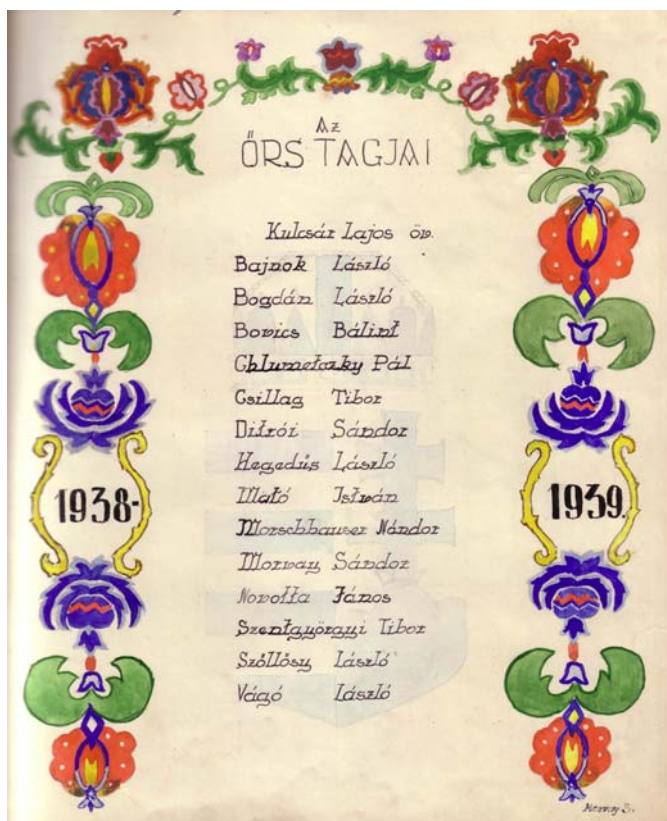 Az
ŐRS TAGJAI
Kulcsár Lajos öv.
Bajnok László
Bogdán László
Bovics Bálint
Chlumetzky Pál
Csillag Tibor
Ditrói Sándor
Hegedűs László
Mató István
Morschhauser Nándor
Morvay Sándor
Novotta János
Szentgyörgyi Tibor
Szőllősy László
Vágó László
1938-
1939.
Morvay S.